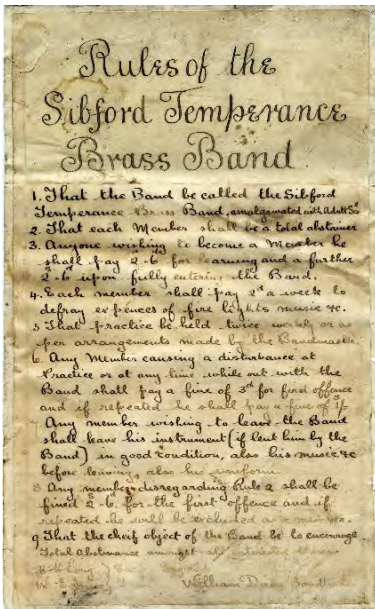 Rules of the
Sibford Temperance
Brass Band
1. That the Band be called the Sibford
Temperance Brass Band, amalgamated with Adult Sc
2. That each Member shall be a total abstainer
3. Anyone wishing to become a Member he
shall pay 2-6 for learning and a further
2-6 upon fully entering the Band.
4. Each member shall pay 2d a week to
defray expences of fire lights music &c.
5 That practice be held twice weekly or as
per arrangements made by the Bandmaster
6. Any Member causing a disturbance at
Practice or at any time while out with the
Band shall pay a fine of 3d for first offence
and if repeated he shall pay a fine of 1/-
7 Any member wishing to leave the Band
shall leave his instrument (if lent him by the
Band) in good condition, also his music &c
before leaving, also his uniform
8 Any member disregarding Rule 2 shall be
fined 2-6 for the first offence and if
repeated he will be excluded as a member.
9 That the cheif object of the Band be to encourage
Total Abstinance amongst
William